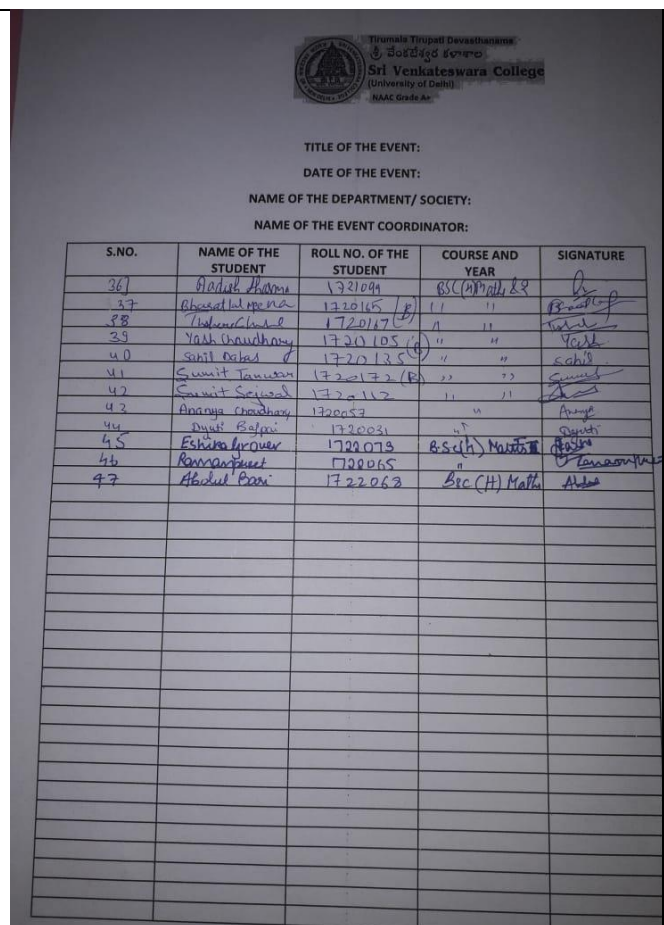 Tirumala Tirupati Devasthanams
శ్రీ వేంకటేశ్వర కళాశాల
Sri Venkateswara College
(University of Delhi)
NAAC Grade A+
TITLE OF THE EVENT:
DATE OF THE EVENT:
NAME OF THE DEPARTMENT/ SOCIETY:
NAME OF THE EVENT COORDINATOR:
S.NO. NAME OF THE STUDENT ROLL NO. OF THE STUDENT COURSE AND YEAR SIGNATURE
36] Aadish Sharma 1721099 BSC(H)Maths
37 Bharatlal meena 1720165 (B) 11 11
38 1720167 11 11
39 Yash Chaudhary 1720105 " " Yash
40 Sahil Dabas 1720135 " " Sahil
41 Sumit Tanwar 1720172 (B) ,, ,, Sumit
42 Sumit Sejwal 1720112 11 11
43 Ananya Choudhary 1720057 " Ananya
44 Dyuti Bajpai 1720031 Dyuti
45 Eshika Grover 1722079 B.Sc(h) Maths
46 Ramanpreet 1722065 "
47 Abdul Bari 1722068 Bsc (H) Maths